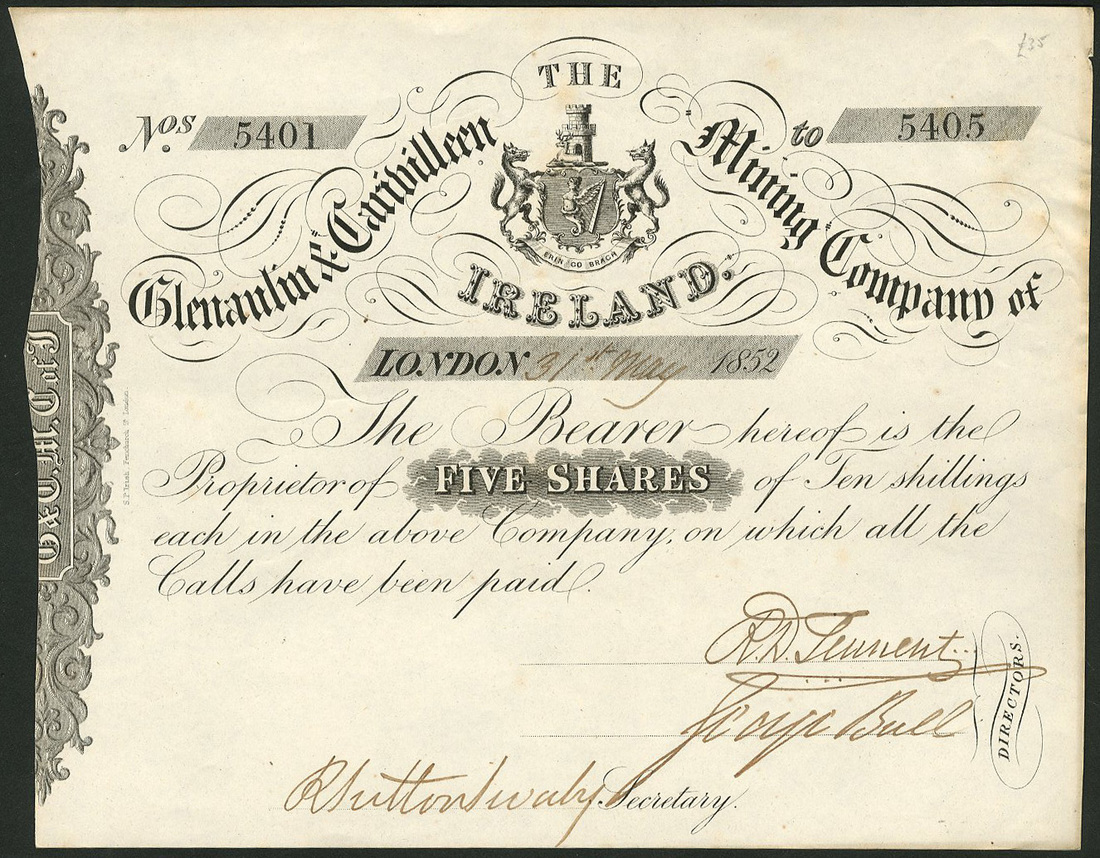 £35
THE
Nos. 5401 to 5405
Glenaulin & Carivilleen Mining Company of
ERIN GO BRAGH
IRELAND.
LONDON 31st May 1852
The Bearer hereof is the
Proprietor of FIVE SHARES of Ten shillings
each in the above Company, on which all the
Calls have been paid.
R. D. Tennent
George Bull
DIRECTORS.
R Sutton Secretary.
G & C. M. C. of I